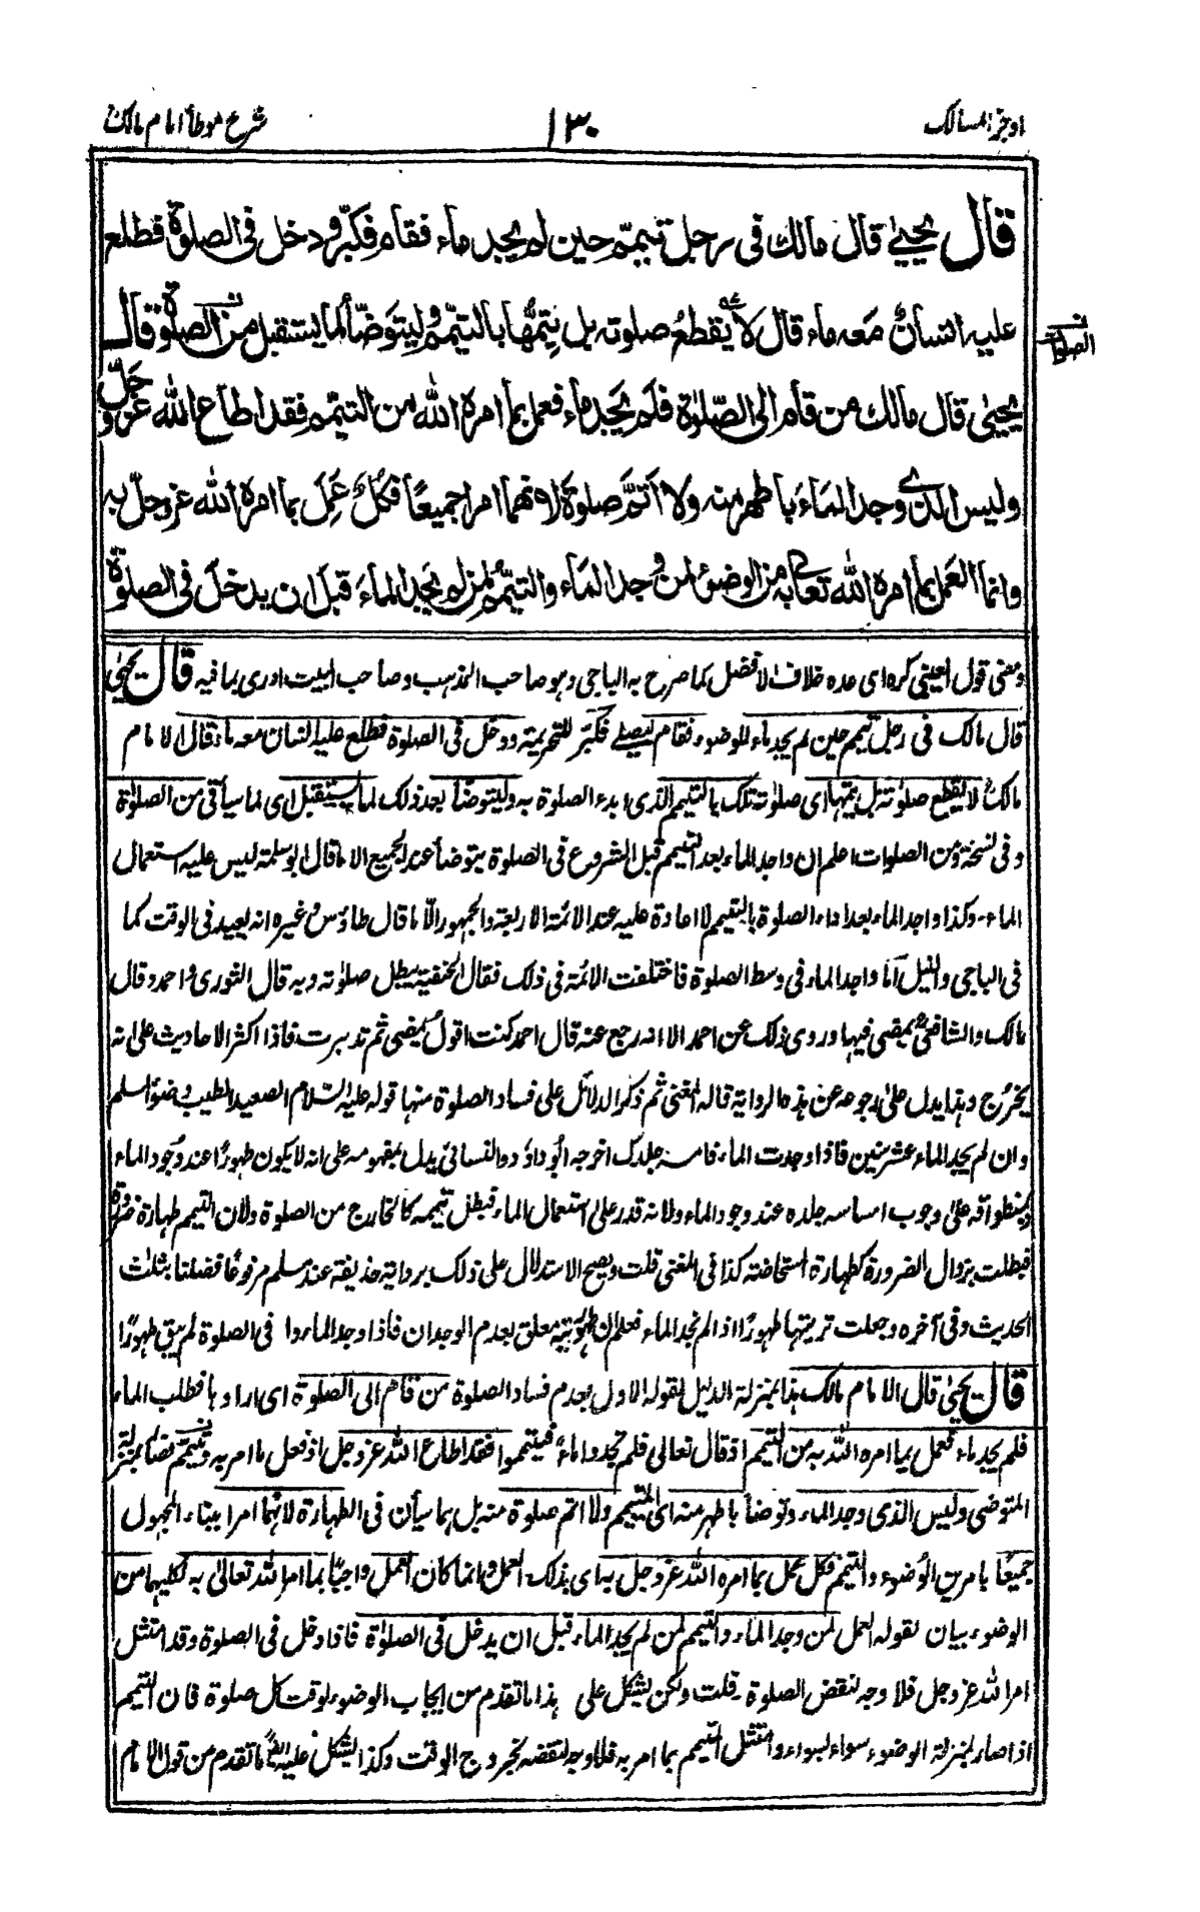 اوجز المسالک ١٣٠ شرح موطأ امام مالک
قال يحيىٰ قال مالك في رجل تيمم حين لم يجد ماء فقام فكبّر ودخل في الصلوة فطلع
عليه انسانٌ معه ماء قال لا يقطعُ صلوته بل يتمُّها بالتيمّم وليتوضّأ لما يستقبل من الصلوة قال
ن الصلوات
يحيىٰ قال مالك من قام الى الصّلوٰة فلم يجد ماء فعمل بما امره الله من التيمّم فقد اطاع الله عزّ وجلّ
وليس الذي وجد الماءَ باطهر منه ولا اتمَّ صلوة لانهما امرا جميعًا فكلٌّ عَمِلَ بما امره الله عز وجلّ به
وانما العمل بما امره الله تعالى به من الوضوء لمن وجد الماء والتيمّم لمن لم يجد الماءَ قبل ان يدخل في الصلوة
ومعنى قول العيني كره اى عده خلاف الافضل كما صرح به الباجى وهو صاحب المذهب وصاحب البيت ادرى بما فيه قال يحيىٰ
قال مالك فى رجل تيمم حين لم يجد ماء للوضوء فقام ليصلى فكبّر للتحريمة ودخل فى الصلوة فطلع عليه انسان معه ماء قال الامام
مالكؒ لا يقطع صلوٰته بل يتمها اى صلوٰته تلك بالتيمم الذى بدء الصلوة به وليتوضأ بعد ذلك لما يستقبل اى لما سيأتى من الصلوٰة
وفى نسخة ومن الصلوات اعلم ان واجد الماء بعد التيمم قبل الشروع فى الصلوة يتوضأ عند الجميع الا ما قال ابو سلمة ليس عليه استعمال
الماء۔ وكذا واجد الماء بعد اداء الصلوة بالتيمم لا اعادة عليه عند الائمة الاربعة والجمهور الّا ما قال طاؤس وغيره انه يعيد فى الوقت كما
فى الباجى والنيل أما واجد الماء فى وسط الصلوة فاختلفت الائمة فى ذلك فقال الحنفية يبطل صلوٰته وبه قال الثورى واحمد وقال
مالك والشافعىؒ يمضى فيها وروى ذلك عن احمد الا انه رجع عنه قال احمد كنت اقول يمضى ثم تدبرت فاذا اكثر الاحاديث على انه
يخرُج وهذا يدل على رجوعه عن هذه الرواية قاله المغنى ثم ذكر الدلائل على فساد الصلوة منها قوله عليه السّلام الصعيد الطيب وضوء المسلم
وان لم يجد الماء عشر سنين فاذا وجدت الماء فامسه جلدك اخرجه ابوداؤد والنسائى يدل بمفهومه على انه لا يكون طهورًا عند وجود الماء
وبمنطوقه على وجوب امساسه جلده عند وجود الماء ولانه قدر على استعمال الماء فبطل تيممه كالخارج من الصلوة ولان التيمم طهارة ضرورة
فبطلت بزوال الضرورة كطهارة المستحاضة كذا فى المغنى قلت ويصح الاستدلال على ذلك برواية حذيفة عند مسلم مرفوعًا فضلنا بثلٰث
الحديث وفى آخره وجعلت تربتها طهورًا اذا لم نجد الماء فعلم ان طهوريته معلق بعدم الوجدان فاذا وجد الماء ولو فى الصلوة لم يبق طهورًا
قال يحيىٰ قال الامام مالك هذا بمنزلة الدليل لقوله الاول بعدم فساد الصلوة من قام الى الصلوة اى ارادها فطلب الماء
فلم يجد ماء فعمل بما امره اللّٰه به من التيمم اذ قال تعالى فلم تجدوا ماءً فتيمموا فقد اطاع اللّٰه عز وجل اذ فعل ما امر به وتيمم فصار بمنزلة
المتوضى وليس الذى وجد الماء وتوضأ باطهر منه اى المتيمم ولا اتم صلوة منه بل هما سيأن فى الطهارة لانهما امرا ببناء المجهول
جميعًا باَمرين الوُضوء والتيمم فكل عمل بما امره اللّٰه عز وجل به اى بذلك العمل وانما كان العمل واجبًا بما امر اللّٰه تعالى به لكليهما من
الوضوء بيان لقوله العمل لمن وجد الماء والتيمم لمن لم يجد الماء قبل ان يدخل فى الصلوٰة فاذا دخل فى الصلوة وقد امتثل
امر اللّٰه عز وجل فلا وجه لنقض الصلوة۔ قلت ولكن يشكل على هذا ما تقدم من ايجاب الوضوء لوقت كل صلوة فان التيمم
اذا صار بمنزلة الوضوء سواء بسواء وامتثل المتيمم بما امر به فلا وجه لنقضه بخروج الوقت وكذا يشكل عليه ايضًا ما تقدم من قول الامام